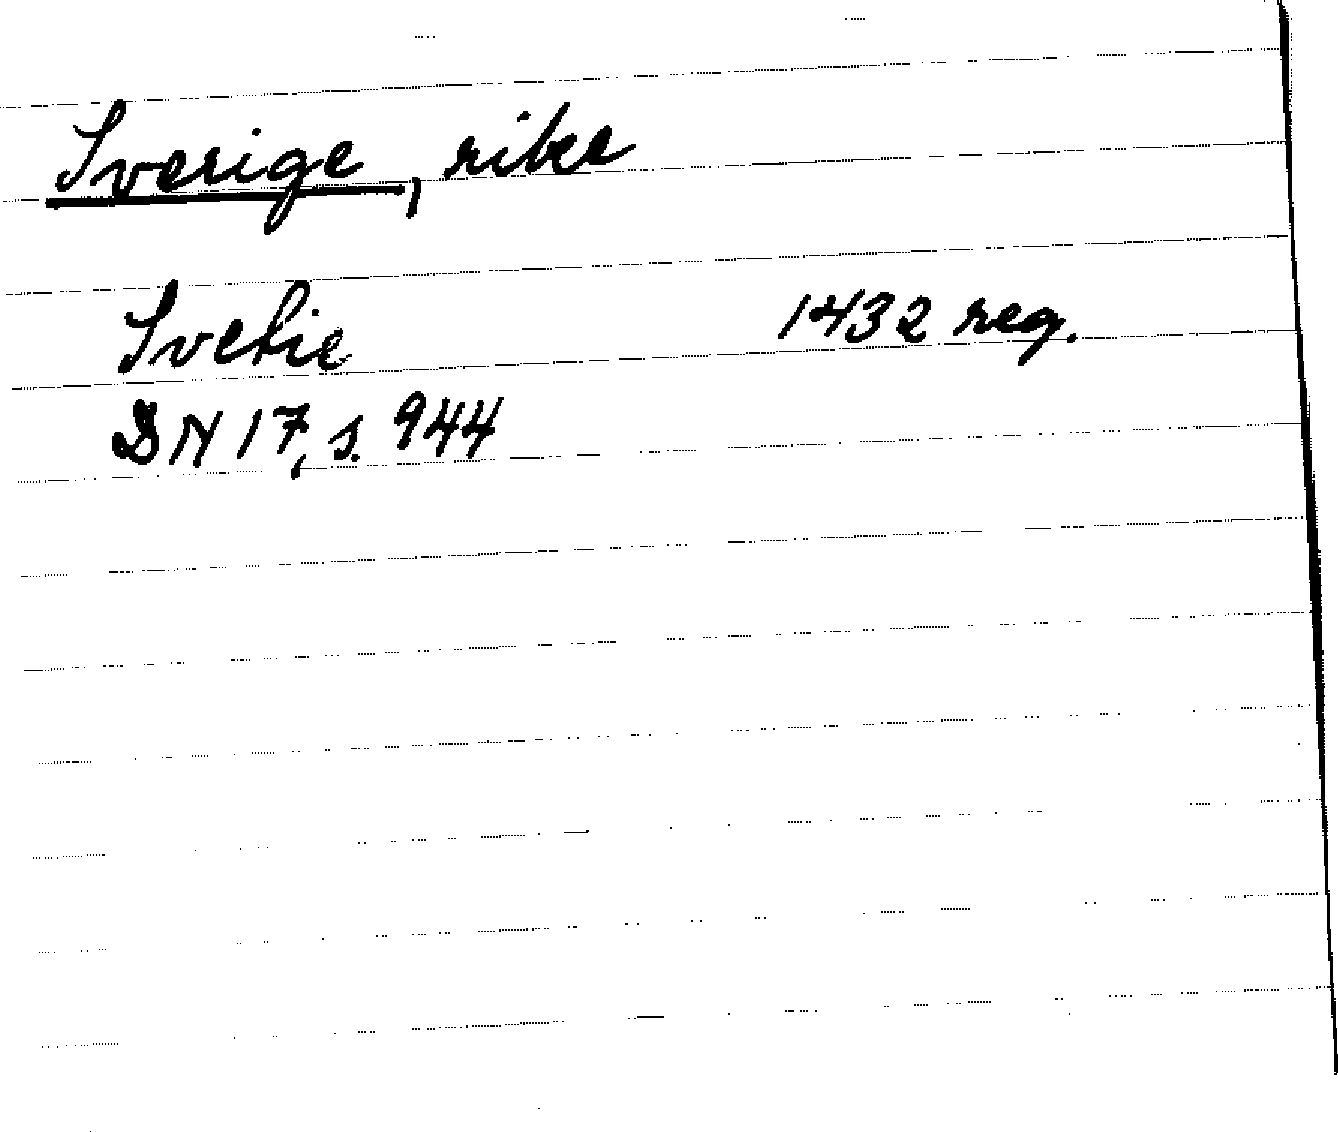 Sverige, rike
Svetie 1432 reg.
DN 17, s. 944